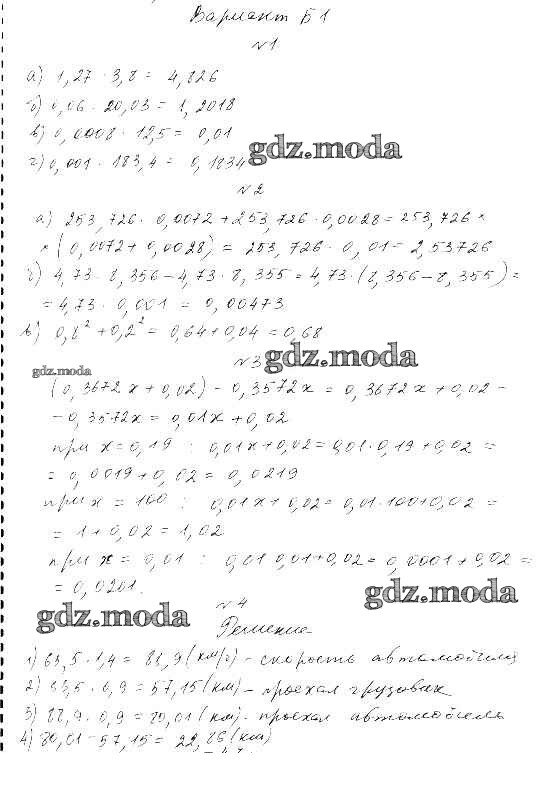 Вариант Б1
№1
а) 1,27 · 3,8 = 4,826
б) 0,06 · 20,03 = 1,2018
в) 0,0008 · 12,5 = 0,01
г) 0,001 · 183,4 = 0,1834
gdz.moda
№2
а) 253,726 · 0,0072 + 253,726 · 0,0028 = 253,726 ×
× (0,0072 + 0,0028) = 253,726 · 0,01 = 2,53726
б) 4,73 · 8,356 - 4,73 · 8,355 = 4,73 · (8,356 - 8,355) =
= 4,73 · 0,001 = 0,00473
в) 0,8² + 0,2² = 0,64 + 0,04 = 0,68
№3
gdz.moda
gdz.moda
(0,3672x + 0,02) - 0,3572x = 0,3672x + 0,02 -
- 0,3572x = 0,01x + 0,02
при x = 0,19 : 0,01x + 0,02 = 0,01 · 0,19 + 0,02 =
= 0,0019 + 0,02 = 0,0219
при x = 100 : 0,01x + 0,02 = 0,01 · 100 + 0,02 =
= 1 + 0,02 = 1,02
при x = 0,01 : 0,01 · 0,01 + 0,02 = 0,0001 + 0,02 =
= 0,0201.
gdz.moda
gdz.moda
№4
Решение
1) 63,5 · 1,4 = 88,9 (км/ч) - скорость автомобиля
2) 63,5 · 0,9 = 57,15 (км) - проехал грузовик
3) 88,9 · 0,9 = 80,01 (км) - проехал автомобиль
4) 80,01 - 57,15 = 22,86 (км)